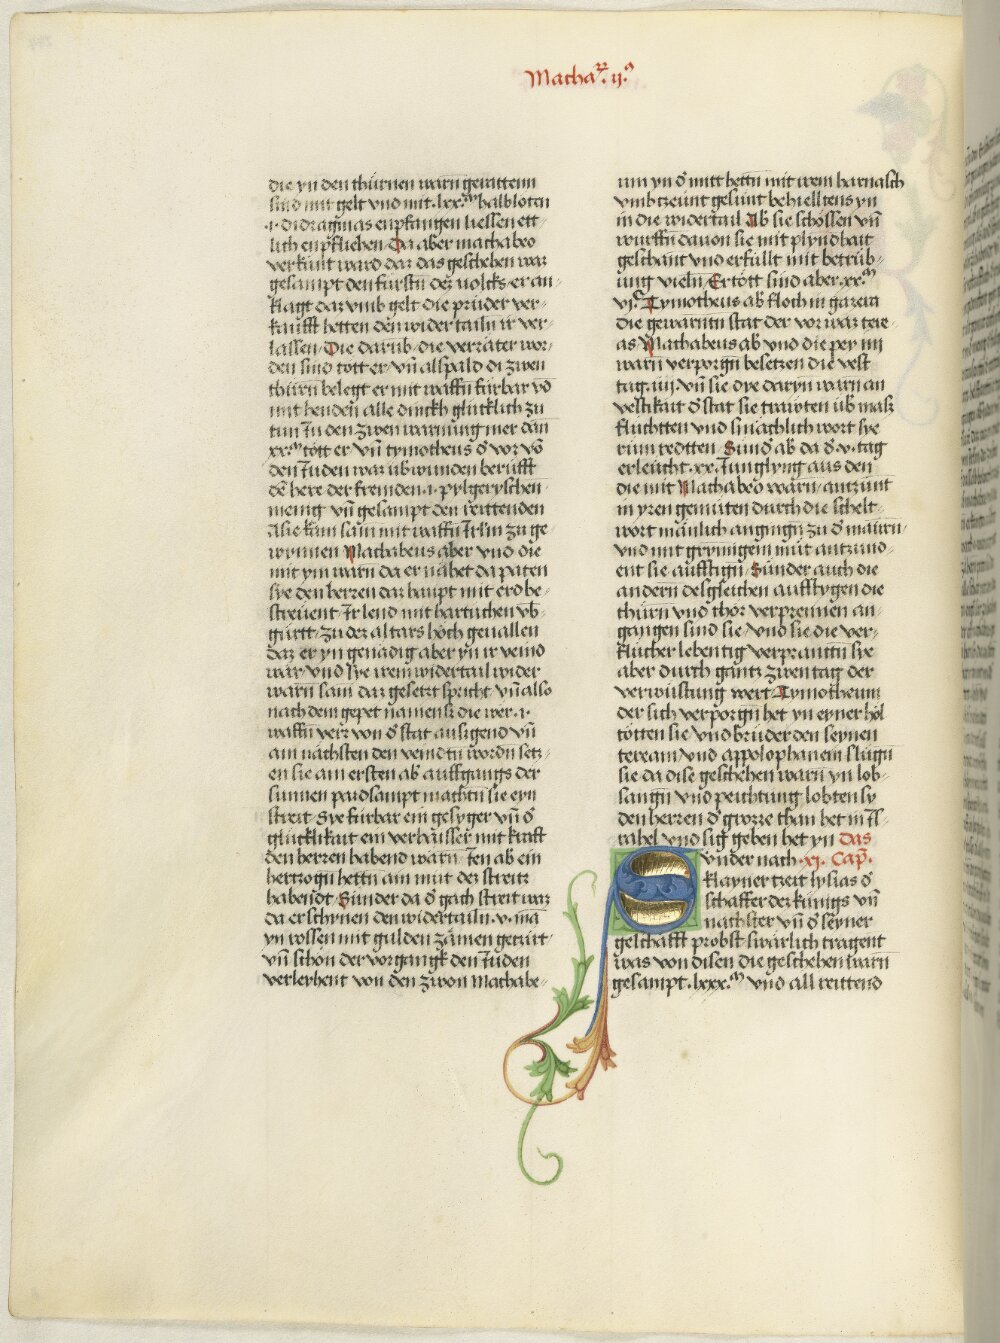 Macha𝔯ꝛ. ij.
die yn den thürnen warn geuattenn
sind mit gelt vnd mit .lxx.m halbloten
.i. didragmas enpfangen liessen ett-
lich enpfliehen Da aber machabeo
verkünt ward daz das geschehen war
gesampt den fürstn dez uolcks er an-
klagt daz vmb gelt die prüder ver-
kaufft hetten den wider tailn ir ver-
lassen Die darüb die verräter wor-
den sind tött er vn̄ alspald di zwen
thürn belegt er mit waffn̄ fürbar vō
mit henden alle dinckh glücklich zu
tun Ju den zwen warnung mer dan̄
xx.m tött er vn̄ tymotheus d̄ vor vō
den Juden war ub wunden berüfft
dē here der fremden .i. pylgeryschen
menig vn̄ gesampt den reittenden
Asie kun sam mit waffn̄ Jrl'm zu ge-
wynnen Machabeus aber vnd die
mit ym warn da er nahet da paten
sye den herren daz haupt mit erd be-
streuent Jr lend mit hartuchen vb-
gürtt zu dez altars höch geuallen
daz er yn genädig aber yn ir veind
wär vnd sye irem widertail wider
wärn sam daz gesetzt spricht vn̄ also
nach dem gepet namens die wer .i.
waffn̄ verr von d̄ stat ausigend vn̄
am nächsten den veindtn wordn setz-
en sie am ersten ab auffgangs der
sunnen paidsampt machtn sie eyn
streit Sye fürbar ein gesyger vn̄ d̄
glücklikait ein verhaisser mit krafft
den herren habend warn Jen ab ein
hertzogn hettn am mut dez streitz
habendt Sunder da d̄ gäch streit waz
da erschynen den widertailn .v. mā
yn rossen mit gulden zämen geziert
vn̄ schön der vorgangk den Juden
verleyhent von den zwon Machabe-
um yn d̄ mitt hettn mit irem harnasch
vmbtzeunt gesunt behielltens yn
in die widertail Ab sie schossen vn̄
wurffn dauon sie mit plyndhait
geschant vnd erfüllt mit betrüb-
ung vieln Ertött sind aber .xx.m
vj.c Tymotheus ab floch in gazera
die gewarntn stat der vor waz tere-
as Machabeus ab vnd die pey im
warn verporgn besetzen die vest
tag .iiij. vn̄ sie dye daryn warn an
vestikait d̄ stat sie trawten üb mass
fluchtten vnd smächlich wort sye
rum redtten Sund ab da d̄ .v. tag
erleücht .xx. Junglyng aus den
die mit Machabeo warn antzünt
in yren gemüten durch die schelt-
wort mänlich angingn zu d̄ maurn
vnd mit grymigem müt antzünd-
ent sie auffstign Sunder auch die
andern desgleichen auffstygen die
thürn vnd thör verprennen an-
gangen sind sie vnd sie die ver-
flucher lebentig verprantn sye
aber durch gantz zwen tag der
verwüstung wert Tymotheum
der sich verporgn het yn eyner höl
tötten sie vnd brüder den seynen
teream vnd appolophanem slugn
sie da dise geschehen warn yn lob-
sangn vnd peichtung lobten sy
den herren d̄ grozze than het in Js-
rahel vnd sig geben het yn Das
Sunder nach .xi. Cap̄.
klayner tzeit lysias d̄
schaffer dez künigs vn̄
nächster vn̄ d̄ seyner
geschäfft probst swärlich tragent
was von disen die geschehen warn
gesampt .lxxx.m vnd all reittend